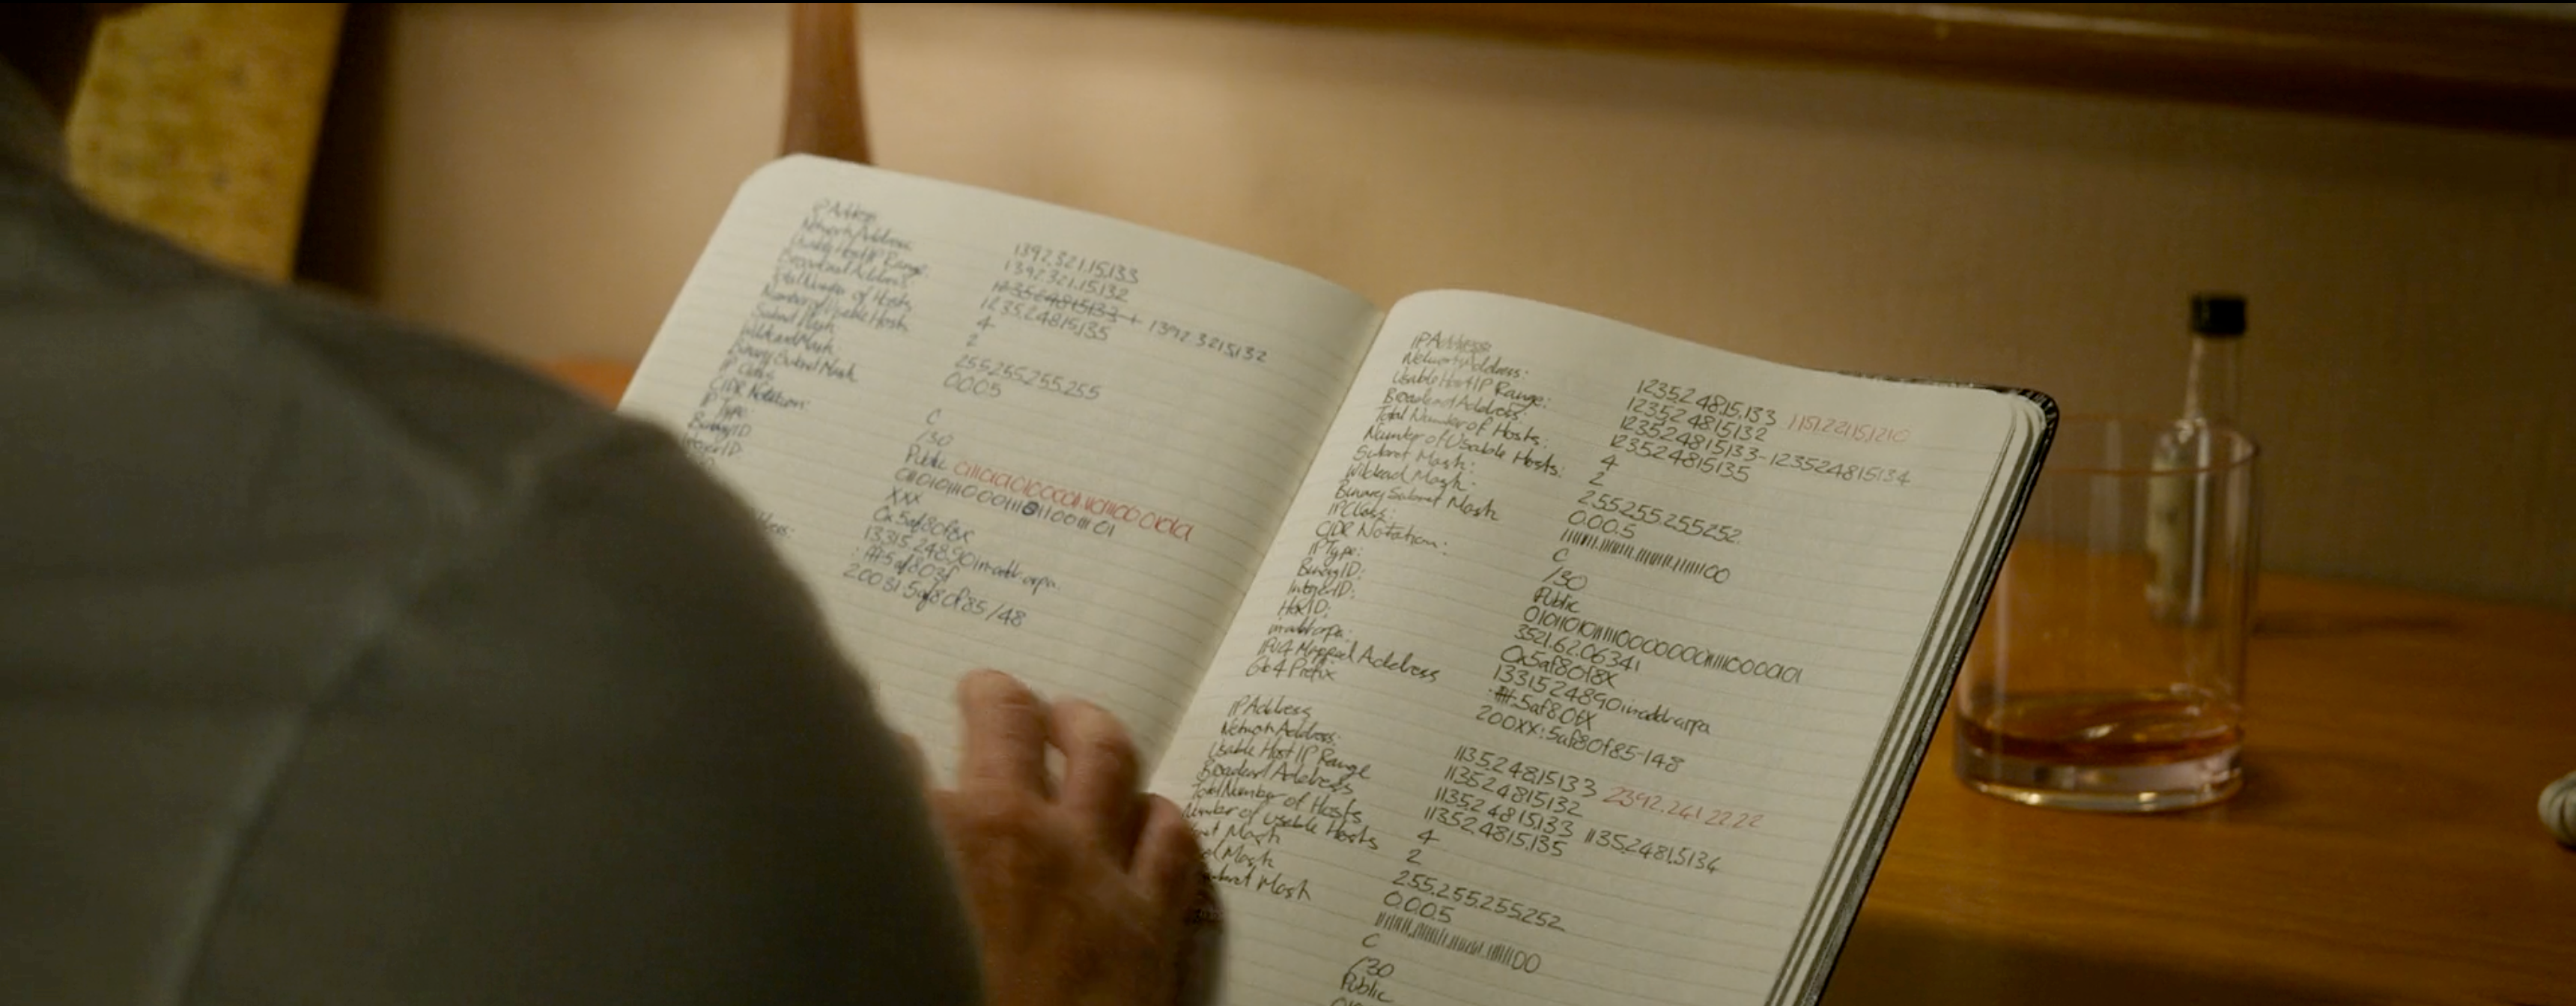 IP Address
Network Address:
Usable Host IP Range:
Broadcast Address:
Total Number of Hosts
Number of Usable Hosts
Subnet Mask
Wildcard Mask:
Binary Subnet Mask
IP Class
CIDR Notation:
IP Type:
BinaryID
IntegerID
1392.321.15.133
1392.321.15.132
1392.3215.132
12352481.5135
4
2
255255.255.255
0.0.0.5
C
/30
Public
XXX
0x5af80f8x
133152489.0inaddr.arpa.
200315af80f85/48
IP Address:
Network Address:
Usable Host IP Range:
Broadcast Address:
Total Number of Hosts:
Number of Usable Hosts:
Subnet Mask:
Wildcard Mask:
Binary Subnet Mask
IP Class:
CIDR Notation:
IP Type:
BinaryID:
IntegerID:
HexID:
inaddr arpa:
IPv4 Mapped Address
6to4 Prefix
12352.4815.133
12352.4815132
1235248.15133-123524815134
123524815135
4
2
255255.255252
0.0.0.5
C
/30
Public
3521.6206341
0x5af80f8x
133152489.0inaddrarpa
200XX:5af80f85-148
IP Address
Network Address:
Usable Host IP Range
Broadcast Address
Total Number of Hosts
Number of Usable Hosts
Mask
Mask
Mask
11352.4815133 2392.241 22.22
113524815132
11352.4815.133 1135.2481.5134
11352.4815.135
4
2
255.255.255252
0.0.0.5
C
/30
Public